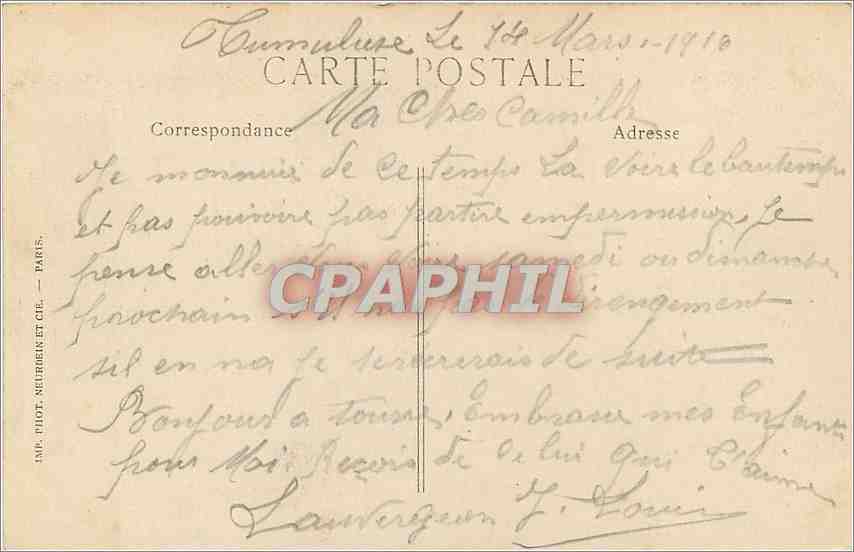 Le 14 Mars 1916
CARTE POSTALE
Ma Chere Camille
Correspondance
Adresse
Je monnuie de ce temps La voire le bautemps
et pas pouvoire pas partire empermission, Je
pense aller vous voire samedi ou dimanche
prochain si il derengement
sil en na Je de suite
Bonjour a tousse, Embrasse mes Enfants
pour Moi Reçois de celui qui t'aime
Lauvergeon J. Louis
IMP. PHOT. NEURDEIN ET CIE. — PARIS.
CPAPHIL